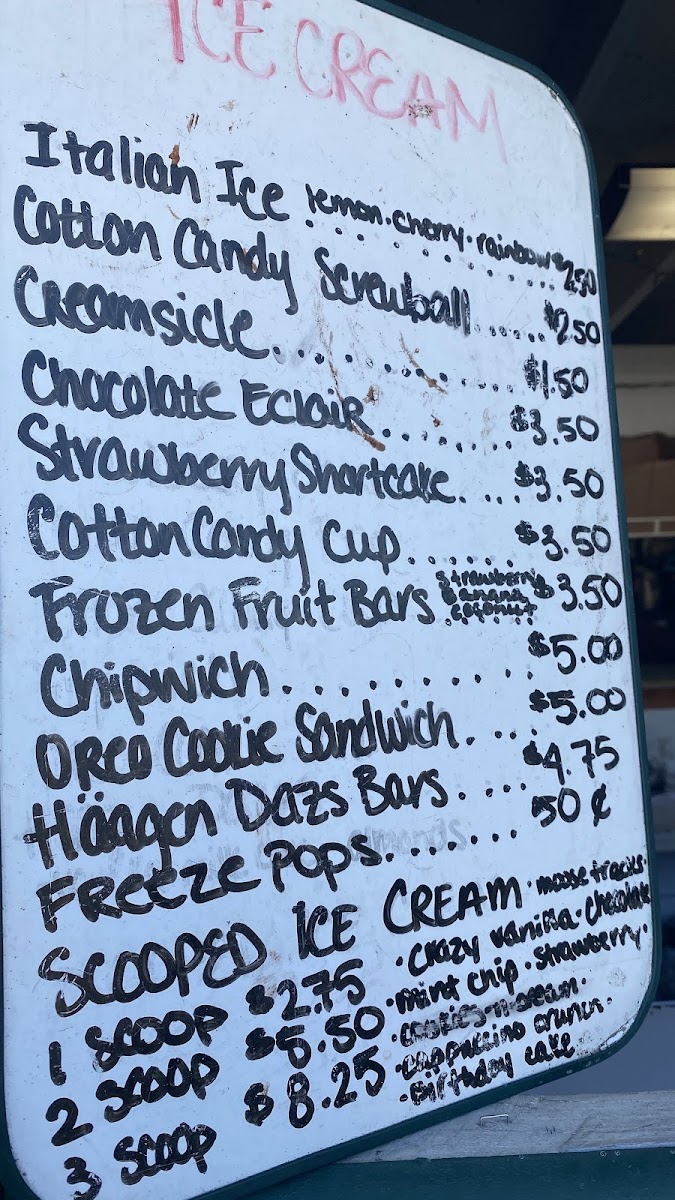 ICE CREAM
Italian Ice lemon · cherry · rainbow $2.50
Cotton Candy Screwball ..... $2.50
Creamsicle ............. $1.50
Chocolate Eclair ....... $3.50
Strawberry Shortcake .... $3.50
Cotton Candy Cup ...... $3.50
Frozen Fruit Bars strawberry banana coconut $3.50
Chipwich .......... $5.00
Oreo Cookie Sandwich .... $5.00
Häagen Dazs Bars .... $4.75
FREEZE POPS ....... 50¢
SCOOPED ICE CREAM · moose tracks ·
· crazy vanilla · chocolate
1 SCOOP $2.75 · mint chip · strawberry ·
2 SCOOP $5.50 · cookies-n-cream ·
3 SCOOP $8.25 · cappuccino crunch ·
· Birthday cake